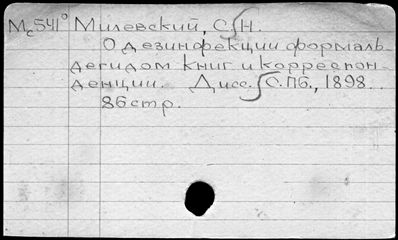 Мс541° Милевский, С.Н.
О дезинфекции формаль-
дегидом книг и корреспон-
денции. Дисс. С.Пб., 1898.
86 стр.